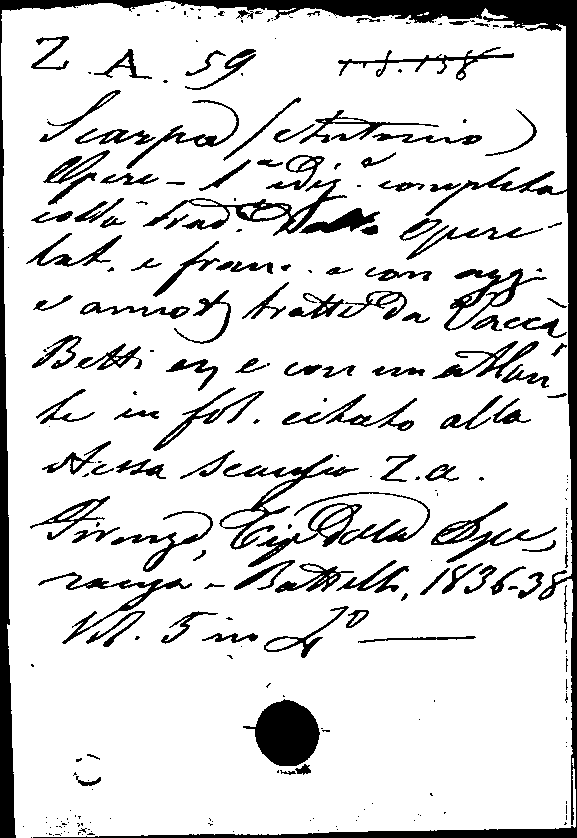 Z. A. 59. 1-8.138
Scarpa (Antonio)
Opere - 1ª ediz.e completa
colla trad. delle Opere
lat. e franc. e con agg.
e annot. tratte da Vaccà,
Betti e con un atlan-
te in fol. citato alla
stessa Z. A.
Firenze, Tip. Della Spe-
ranza - Battelli, 1836-38
Vol. 5 in 4º